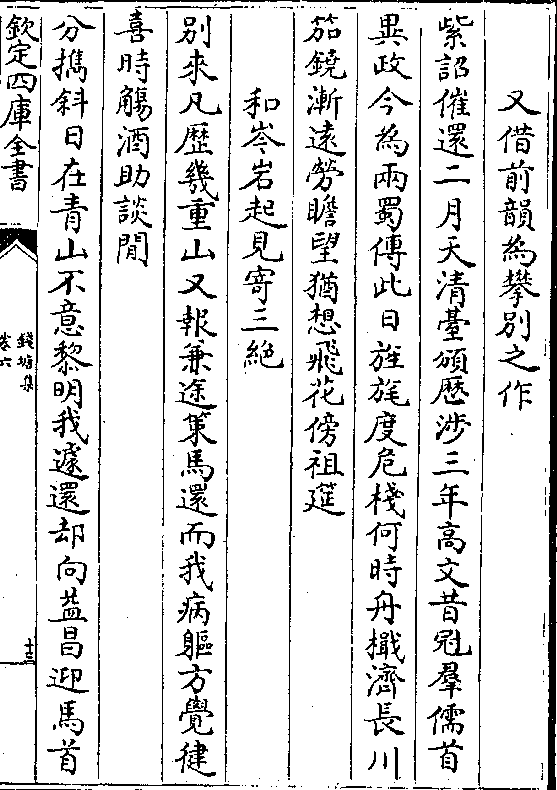 又借前韻為攀別之作
紫詔催還二月天清臺頒歷涉三年高文昔冠羣儒首
異政今為兩蜀傳此日旌旄度危棧何時舟檝濟長川
笳鐃漸遠勞瞻望猶想飛花傍祖筵
和岑岩起見寄三絶
別來凡歴幾重山又報兼途策馬還而我病軀方覺健
喜時觴酒助談閒
分擕斜日在青山不意黎明我遽還却向益昌迎馬首
欽定四庫全書
錢塘集
卷六
十三